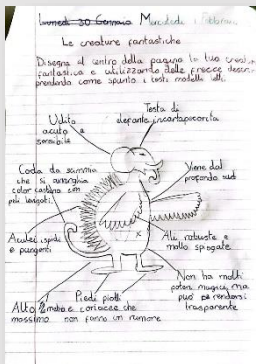 Lunedì 30 Gennaio Mercoledì 1 Febbraio
Le creature fantastiche
Disegna al centro della pagina la tua creatura
fantastica e utilizzando delle frecce descrivi
prendendo come spunto i testi modello letti.
Testa di
elefante incartapecorita
Udito
acuto e
sensibile
Coda da
che si
color castano con
peli
Viene dal
profondo sud
Aculei ispidi
e pungenti
Ali robuste e
molto spiegate
Non ha molti
poteri magici, ma
può rendersi
trasparente
Piedi piatti
e coriacee che
non fanno un rumore
Alto 2 metri
massimo